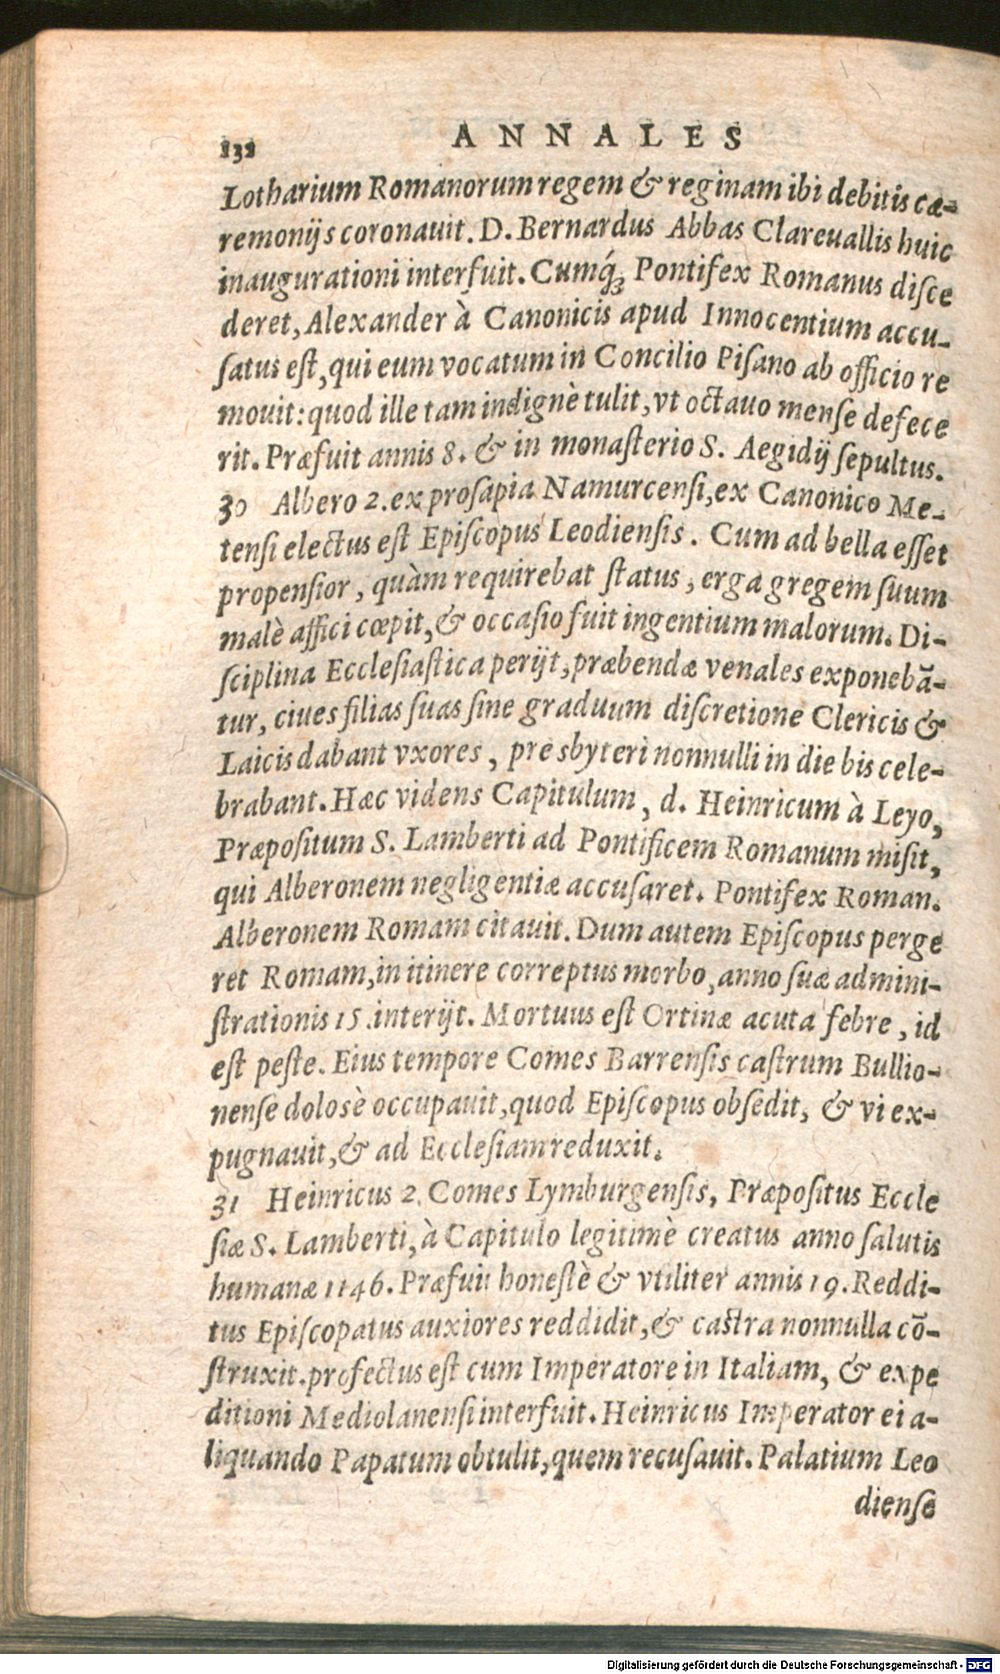 132 ANNALES
Lotharium Romanorum regem & reginam ibi debitis cæ-
remonijs coronauit. D. Bernardus Abbas Clareuallis huic
inaugurationi interfuit. Cumq́ꝫ Pontifex Romanus disce
deret, Alexander à Canonicis apud Innocentium accu-
satus est, qui eum vocatum in Concilio Pisano ab officio re
mouit: quod ille tam indignè tulit, vt octauo mense defece
rit. Præfuit annis 8. & in monasterio S. Aegidij sepultus.
30 Albero 2. ex prosapia Namurcensi, ex Canonico Me-
tensi electus est Episcopus Leodiensis. Cum ad bella esset
propensior, quàm requirebat status, erga gregem suum
malè affici cœpit, & occasio fuit ingentium malorum. Di-
sciplina Ecclesiastica perijt, præbendæ venales exponebā-
tur, ciues filias suas sine graduum discretione Clericis &
Laicis dabant vxores, presbyteri nonnulli in die bis cele-
brabant. Hæc videns Capitulum, d. Heinricum à Leyo,
Præpositum S. Lamberti ad Pontificem Romanum misit,
qui Alberonem negligentiæ accusaret. Pontifex Roman.
Alberonem Romam citauit. Dum autem Episcopus perge
ret Romam, in itinere correptus morbo, anno suæ admini-
strationis 15. interijt. Mortuus est Ortinæ acuta febre, id
est peste. Eius tempore Comes Barrensis castrum Bullio-
nense dolosè occupauit, quod Episcopus obsedit, & vi ex-
pugnauit, & ad Ecclesiam reduxit.
31 Heinricus 2. Comes Lymburgensis, Præpositus Eccle
siæ S. Lamberti, à Capitulo legitimè creatus anno salutis
humanæ 1146. Præfuit honestè & vtiliter annis 19. Reddi-
tus Episcopatus auxiores reddidit, & castra nonnulla cō-
struxit. profectus est cum Imperatore in Italiam, & expe
ditioni Mediolanensi interfuit. Heinricus Imperator ei a-
liquando Papatum obtulit, quem recusauit. Palatium Leo
diense
Digitalisierung gefördert durch die Deutsche Forschungsgemeinschaft - DFG